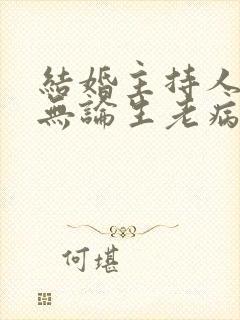 結婚主持人
無論生老病
何堪